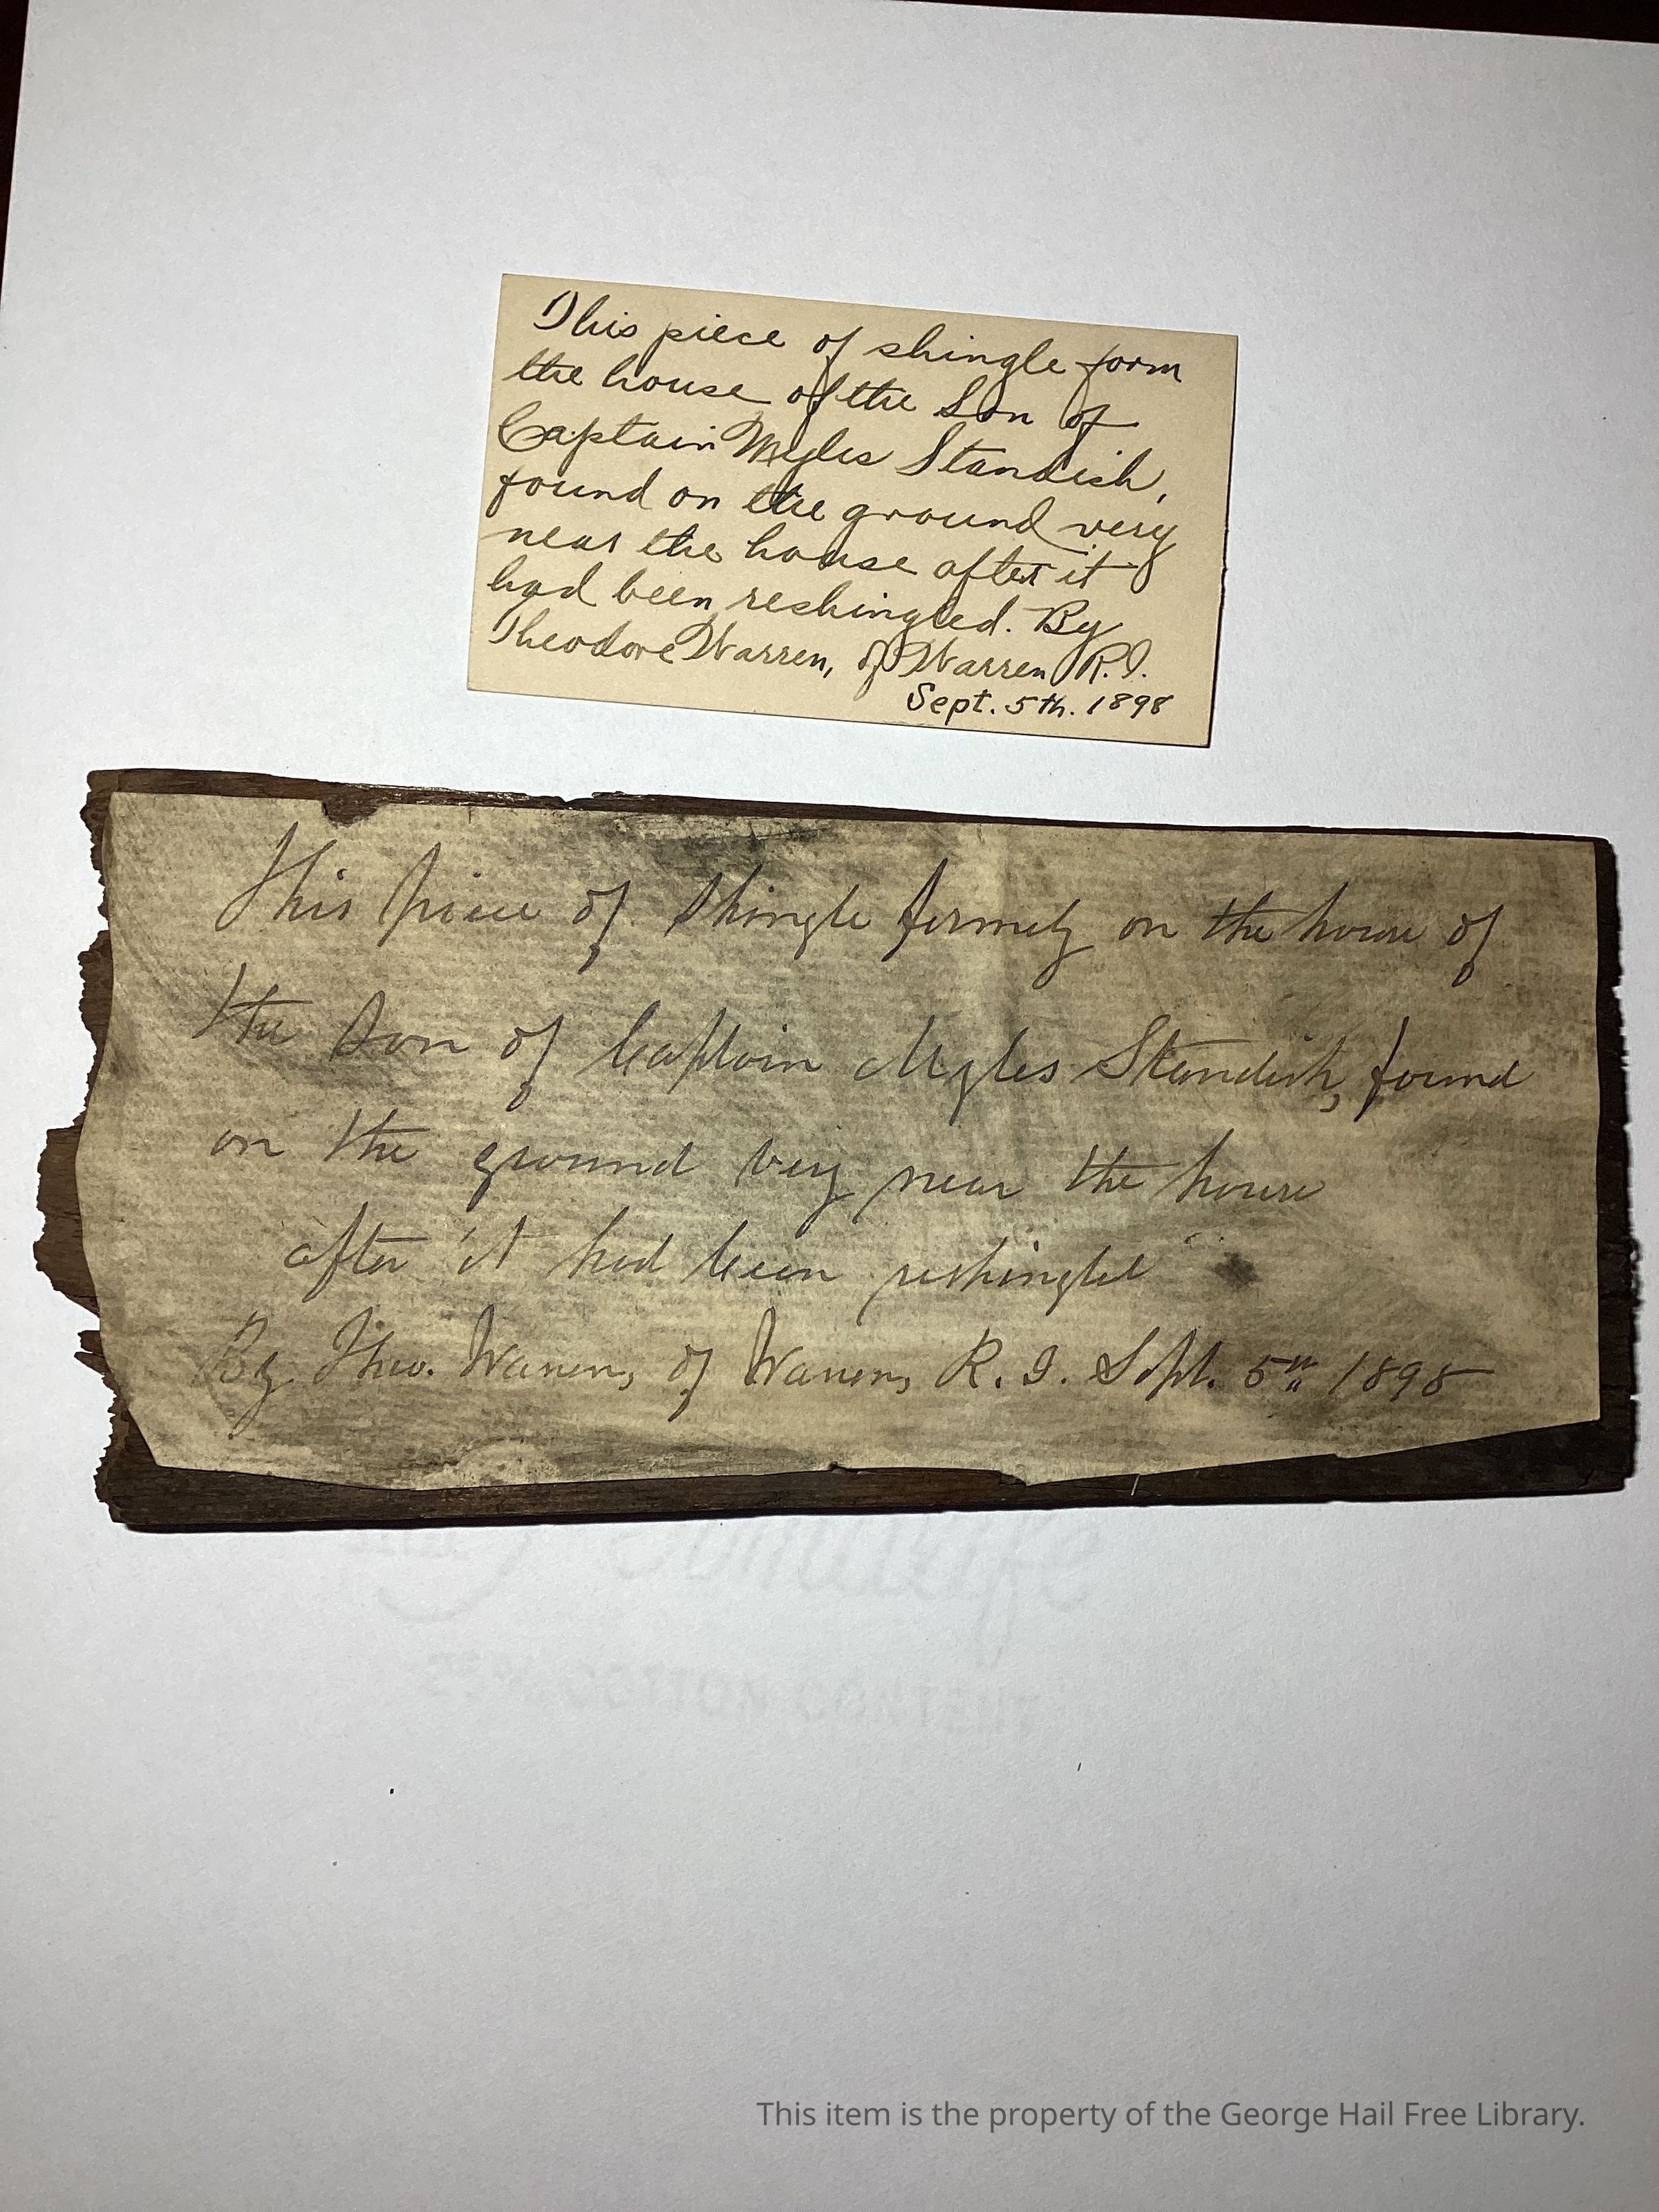 This piece of shingle form
the house of the Son of
Captain Myles Standish,
found on the ground very
near the house after it
had been reshingled. By
Theodore Warren, of Warren R.I.
Sept. 5th. 1898
This piece of shingle formely on the house of
the Son of Captain Myles Standish, found
on the ground very near the house
after it had been reshingled
By Theo. Warren, of Warren, R. I. Sept. 5th 1898
This item is the property of the George Hail Free Library.